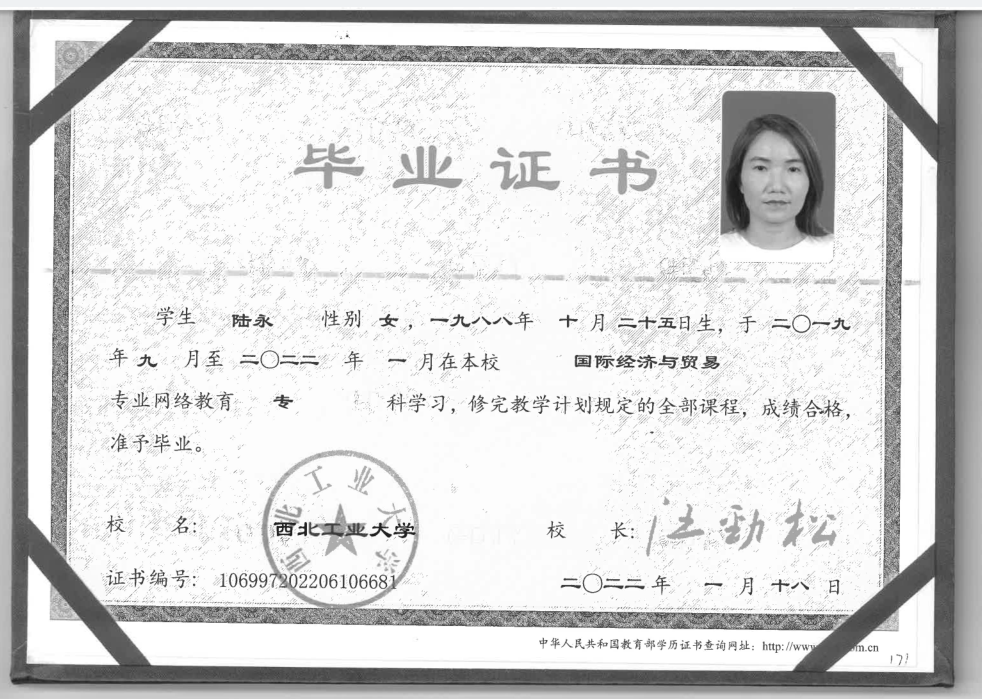 毕业证书
学生 陆永 性别 女，一九八八年 十 月 二十五日生，于 二〇一九
年 九 月至 二〇二二 年 一 月在本校 国际经济与贸易
专业网络教育 专 科学习，修完教学计划规定的全部课程，成绩合格，
准予毕业。
西北工业大学
校 名： 西北工业大学 校 长： 汪劲松
证书编号： 106997202206106681 二〇二二 年 一 月 十八 日
中华人民共和国教育部学历证书查询网址：http://www. .com.cn
171